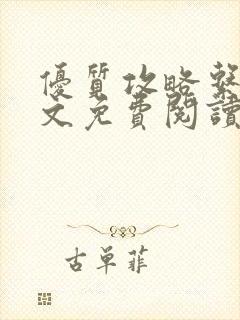 優質攻略繫
文免費閱讀
古單菲